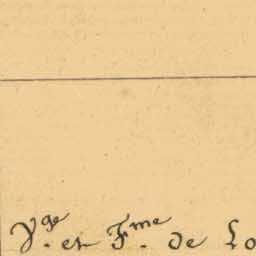 Vge. et Fme. de Lo